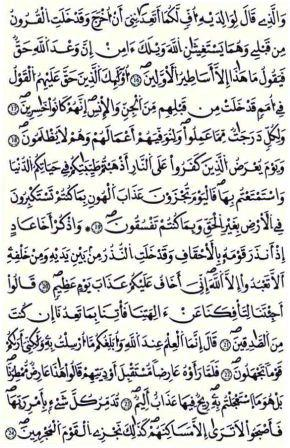 وَالَّذِي قَالَ لِوَالِدَيْهِ أُفٍّ لَكُمَا أَتَعِدَانِنِي أَنْ أُخْرَجَ وَقَدْ خَلَتِ الْقُرُونُ
مِن قَبْلِي وَهُمَا يَسْتَغِيثَانِ اللَّهَ وَيْلَكَ ءَامِنْ إِنَّ وَعْدَ اللَّهِ حَقٌّ
فَيَقُولُ مَا هَٰذَا إِلَّا أَسَاطِيرُ الْأَوَّلِينَ أُولَٰئِكَ الَّذِينَ حَقَّ عَلَيْهِمُ الْقَوْلُ
فِي أُمَمٍ قَدْ خَلَتْ مِن قَبْلِهِم مِنَ الْجِنِّ وَالْإِنسِ إِنَّهُمْ كَانُوا خَٰسِرِينَ
وَلِكُلٍّ دَرَجَٰتٌ مِمَّا عَمِلُوا وَلِنُوَفِّيَهُمْ أَعْمَٰلَهُمْ وَهُمْ لَا يُظْلَمُونَ
وَيَوْمَ يُعْرَضُ الَّذِينَ كَفَرُوا عَلَى النَّارِ أَذْهَبْتُمْ طَيِّبَٰتِكُمْ فِي حَيَاتِكُمُ الدُّنْيَا
وَاسْتَمْتَعْتُم بِهَا فَالْيَوْمَ تُجْزَوْنَ عَذَابَ الْهُونِ بِمَا كُنتُمْ تَسْتَكْبِرُونَ
فِي الْأَرْضِ بِغَيْرِ الْحَقِّ وَبِمَا كُنتُمْ تَفْسُقُونَ وَاذْكُرْ أَخَا عَادٍ
إِذْ أَنذَرَ قَوْمَهُ بِالْأَحْقَافِ وَقَدْ خَلَتِ النُّذُرُ مِن بَيْنِ يَدَيْهِ وَمِنْ خَلْفِهِ
أَلَّا تَعْبُدُوا إِلَّا اللَّهَ إِنِّي أَخَافُ عَلَيْكُمْ عَذَابَ يَوْمٍ عَظِيمٍ قَالُوا
أَجِئْتَنَا لِتَأْفِكَنَا عَنْ ءَالِهَتِنَا فَأْتِنَا بِمَا تَعِدُنَا إِن كُنتَ
مِنَ الصَّٰدِقِينَ قَالَ إِنَّمَا الْعِلْمُ عِندَ اللَّهِ وَأُبَلِّغُكُم مَا أُرْسِلْتُ بِهِ وَلَٰكِنِّيَ أَرَىٰكُمْ
قَوْمًا تَجْهَلُونَ فَلَمَّا رَأَوْهُ عَارِضًا مُسْتَقْبِلَ أَوْدِيَتِهِمْ قَالُوا هَٰذَا عَارِضٌ مُمْطِرُنَا
بَلْ هُوَ مَا اسْتَعْجَلْتُم بِهِ رِيحٌ فِيهَا عَذَابٌ أَلِيمٌ تُدَمِّرُ كُلَّ شَيْءٍ بِأَمْرِ رَبِّهَا
فَأَصْبَحُوا لَا تَرَىٰ إِلَّا مَسَٰكِنَهُمْ كَذَٰلِكَ نَجْزِي الْقَوْمَ الْمُجْرِمِينَ